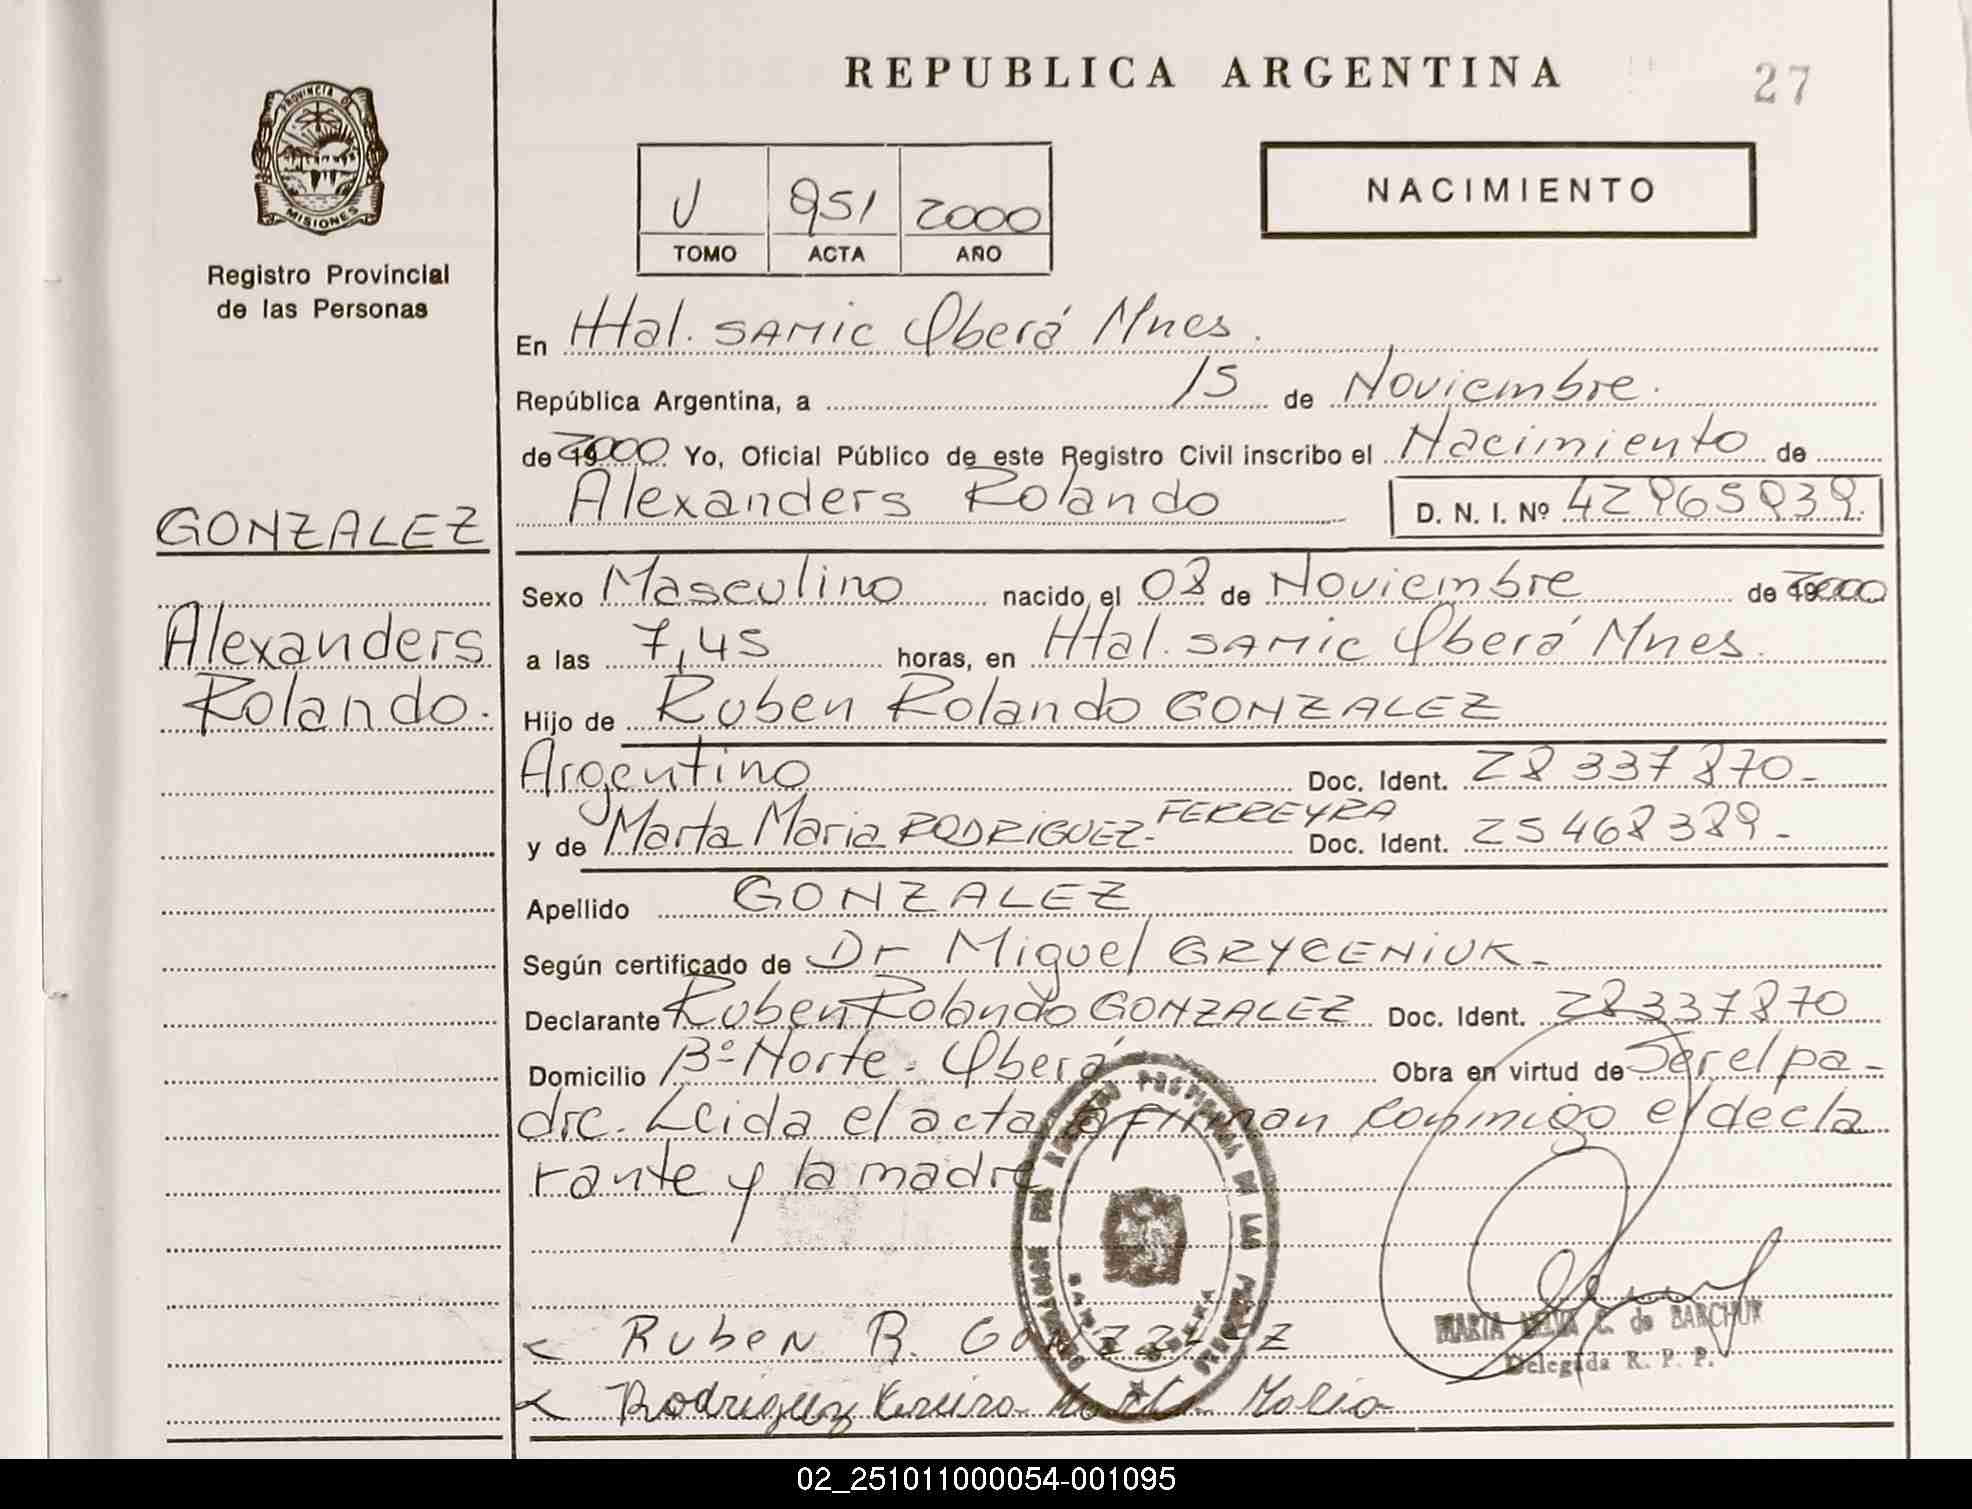 REPUBLICA ARGENTINA
27
PROVINCIA DE
MISIONES
Registro Provincial
de las Personas
V 851 2000
TOMO ACTA AÑO
NACIMIENTO
En Htal. SAMIC Oberá Mnes.
República Argentina, a 15 de Noviembre.
de 2000 Yo, Oficial Público de este Registro Civil inscribo el Nacimiento de
Alexanders Rolando D. N. I. Nº
GONZALEZ
Alexanders
Rolando.
Sexo Masculino nacido el 08 de Noviembre de 2000
a las 7,45 horas, en Htal. SAMIC Oberá Mnes.
Hijo de Ruben Rolando GONZALEZ
Argentino Doc. Ident. 28 337 870-
y de Marta Maria RODRIGUEZ-FERREYRA Doc. Ident. 25 468 389-
Apellido GONZALEZ
Según certificado de Dr Miguel GRYCENIUK-
Declarante Ruben Rolando GONZALEZ Doc. Ident. 28337870
Domicilio Bº Norte. Oberá Obra en virtud de Ser el pa-
dre. Leida el acta la firman conmigo el decla
rante y la madre
Ruben R. GONZALEZ
Rodriguez Maria
MARTA C. de BARCHUK
Delegada R. P. P.
02_251011000054-001095